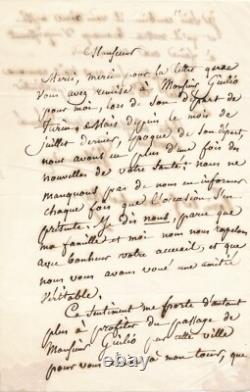 Monsieur
Merci, merci pour la lettre que
vous avez remise à Monsieur Giulio
pour moi, lors de son départ de
Turin. Mais depuis le mois de
juillet dernier, époque de son départ,
nous avons eu plus d'une fois des
nouvelles de votre santé: nous ne
manquons pas de nous en informer
chaque fois que l'occasion s'en
présente. Je dis nous, parce que
ma famille et moi nous nous rappelons
avec bonheur votre accueil, et que
nous vous avons voué une amitié
véritable.
Ce sentiment me porte d'autant
plus à profiter du passage de
Monsieur Giulio par cette ville
pour vous à mon tour, que
© ebay